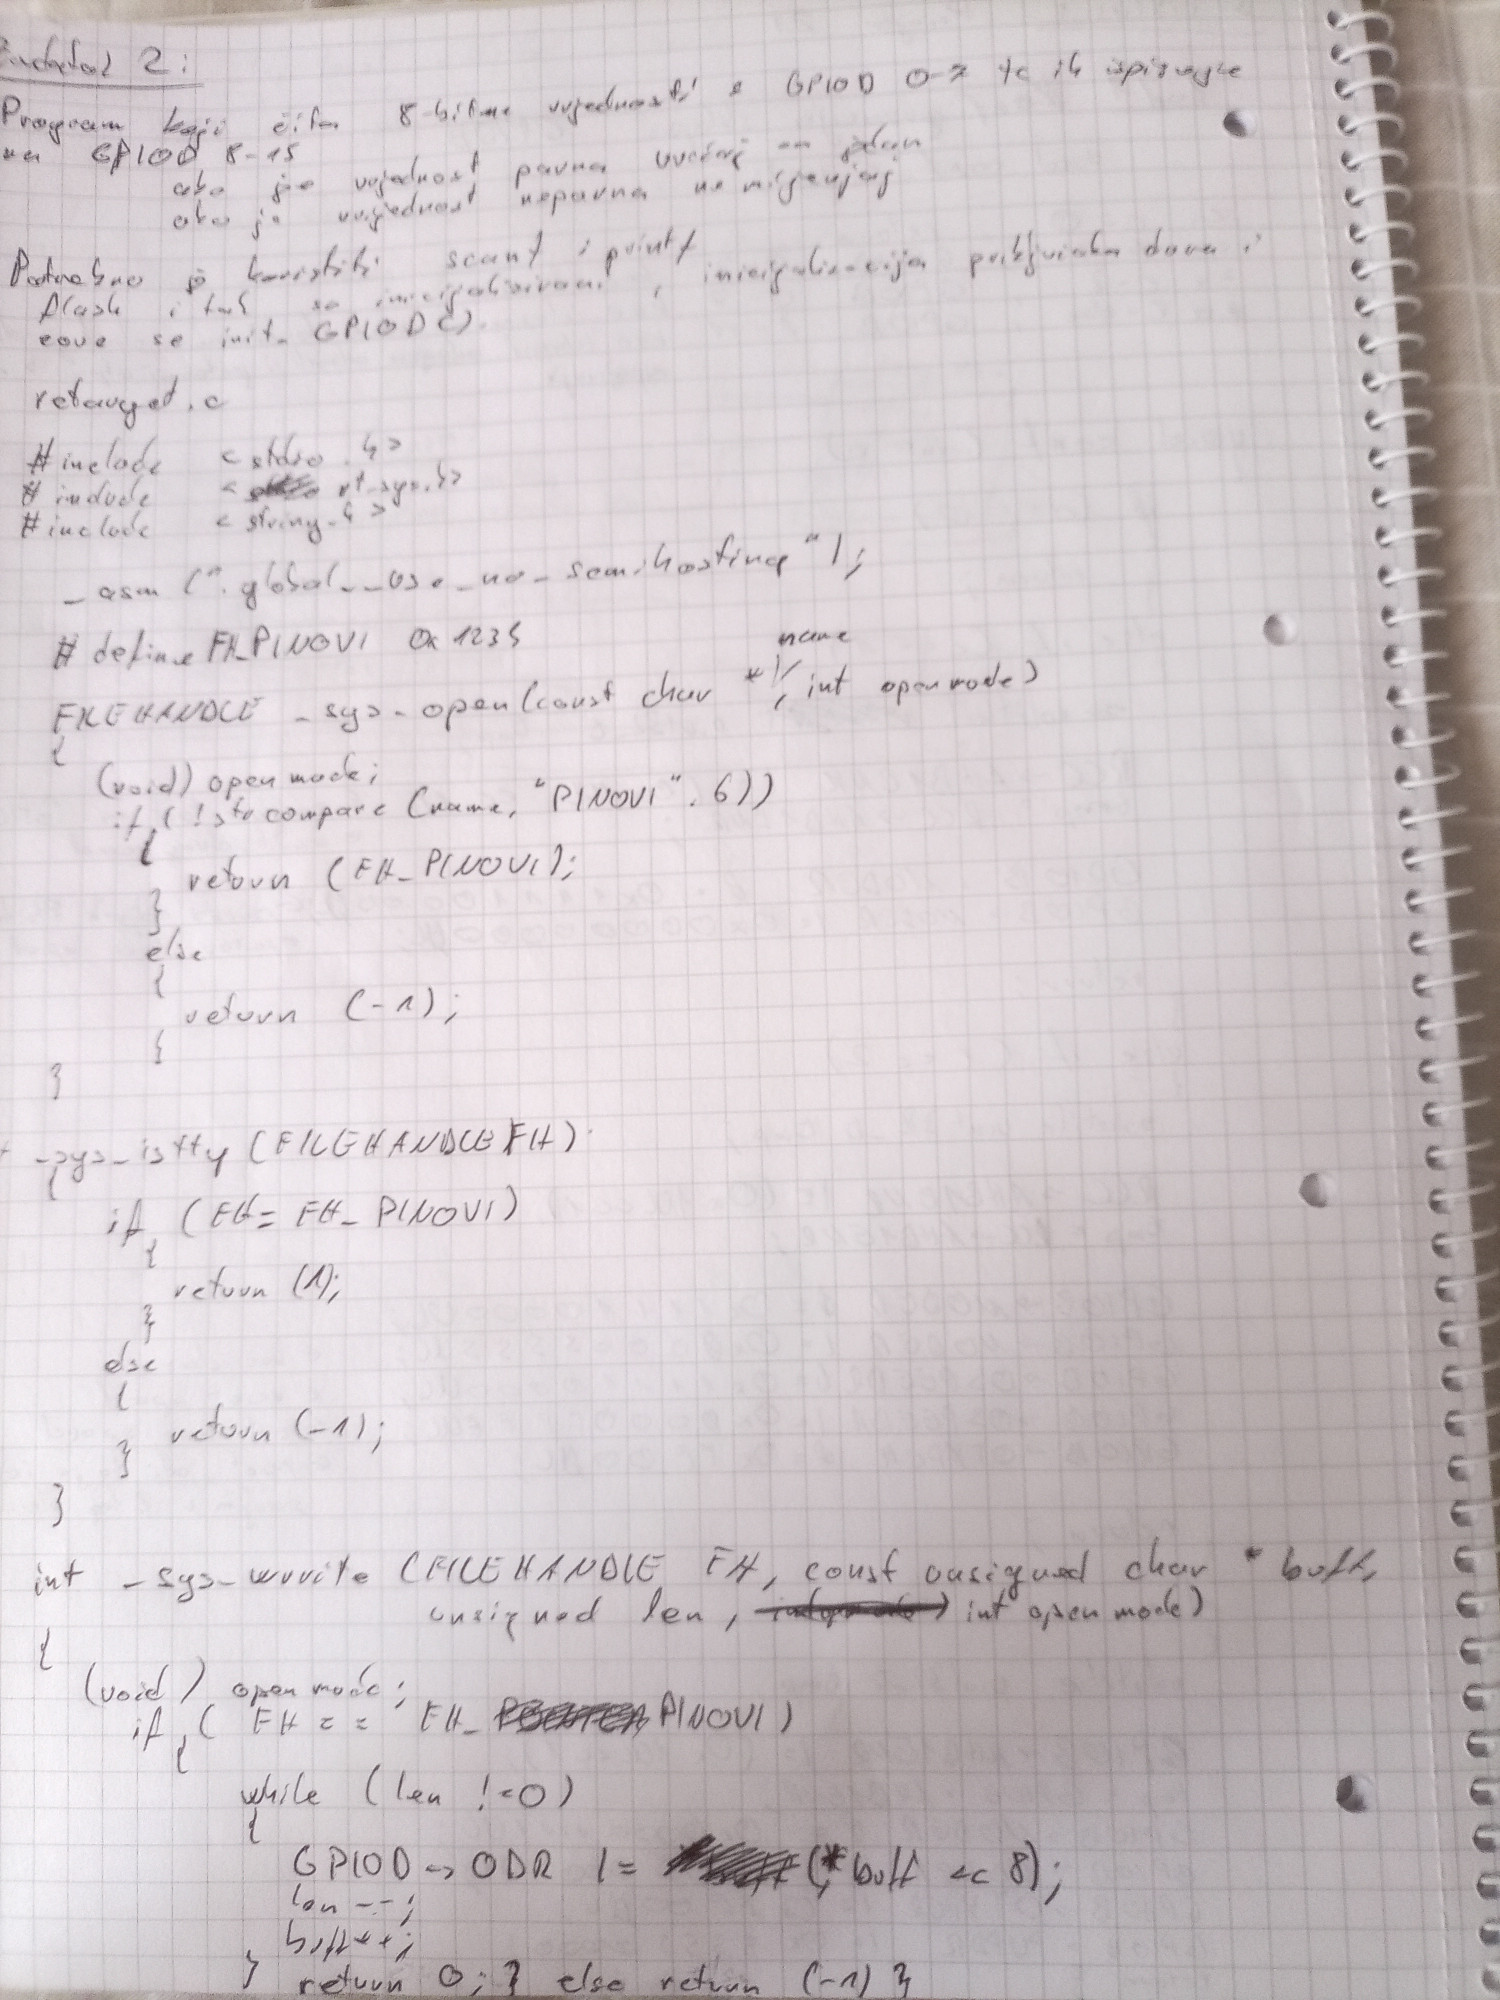 Zadatak 2:
Program koji čita 8-bitne vrijednosti s GPIOD 0-7 te ih ispisuje
na GPIOD 8-15
ako je vrijednost parna uvećaj za jedan
ako je vrijednost neparna ne mijenjaj
Potrebno je koristiti scanf i printf
flash i takt su inicijalizirani, inicijalizacija priključaka dana i
zove se init_GPIOD().
retarget.c
#include <stdio.h>
#include <rt_sys.h>
#include <string.h>
_asm (".global__use_no_semihosting");
#define FH_PINOVI 0x1235
name
FILEHANDLE _sys_open(const char *, int openmode)
{
(void) openmode;
if (!strcompare (name, "PINOVI", 6))
{
return (FH_PINOVI);
}
else
{
return (-1);
{
}
_sys_istty (FILEHANDLE FH)
{
if (FH= FH_PINOVI)
{
return (1);
}
else
{
return (-1);
}
}
int _sys_wrrite (FILEHANDLE FH, const unsigned char * buff,
unsigned len, int openmode)
{
(void) openmode;
if ( FH == FH_PINOVI)
{
while (len !=0)
{
GPIOD->ODR |= (*buff << 8);
len--;
buff++;
} return 0; } else return (-1) }